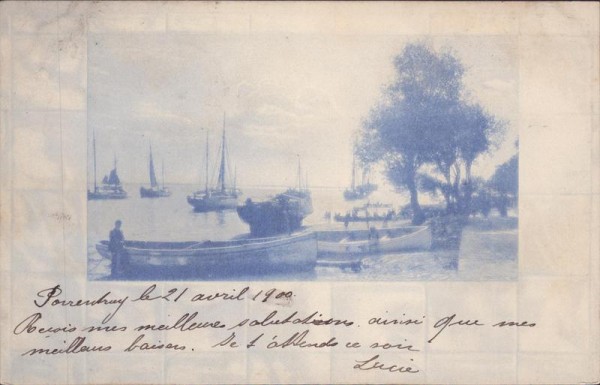 Porrentruy le 21 avril 1900.
Reçois mes meilleures salutations ainsi que mes
meilleurs baisers. Je t'attends ce soir
Lucie